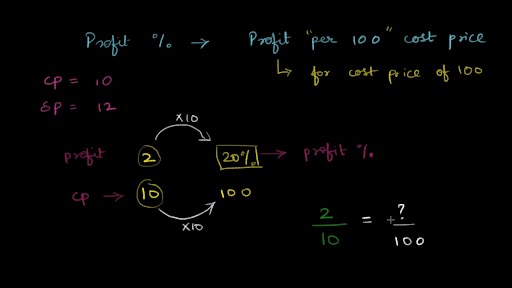 Profit % → Profit "per 100" cost price
↳ for cost price of 100
CP = 10
SP = 12
×10
profit 2 20% → profit %
CP → 10 100
×10
2/10 = ?/100